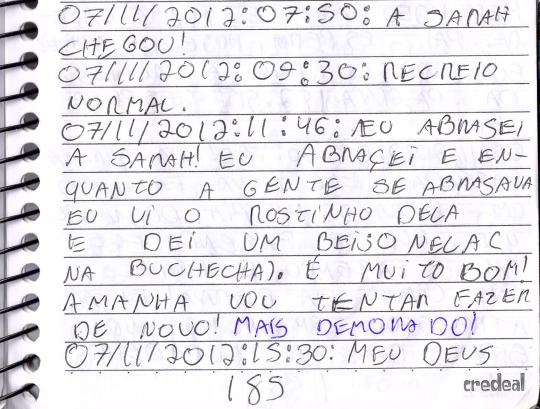 07/11/2012:07:50: A SARAH
CHEGOU!
07/11/2012:09:30: RECREIO
NORMAL.
07/11/2012:11:46: EU ABRASEI
A SARAH! EU ABRAÇEI E EN-
QUANTO A GENTE SE ABRASAVA
EU VI O ROSTINHO DELA
E DEI UM BEIJO NELA(
NA BUCHECHA). É MUITO BOM!
AMANHA VOU TENTAR FAZER
DE NOVO! MAIS DEMORADO!
07/11/2012:15:30: MEU DEUS
185
credeal